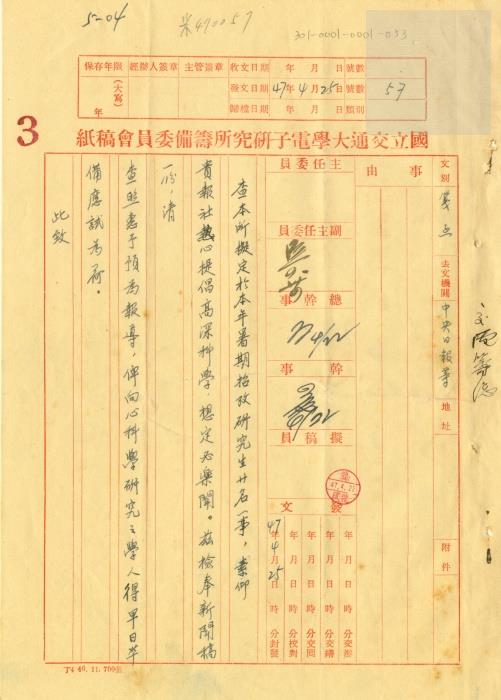 5-04
米470057
301-0001-0001-033
保存年限 (大寫) 年
經辦人簽章
主管簽章
收文日期 年 月 日 號數
發文日期 47年4月25日 號數 57
歸檔日期 年 月 日 類別
3
國立交通大學電子研究所籌備委員會稿紙
文別 箋函
去文機關 中央日報等
地址
附件
事由
主任委員
副主任委員
總幹事
幹事
擬稿員
發文
年 月 日 時 分交辦
年 月 日 時 分交繕
年 月 日 時 分交回
年 月 日 時 分校對
47年4月25日 時 分封發
查本所擬定於本年暑期招攷研究生廿名一事，素仰
貴報社熱心提倡高深科學，想定必樂聞。茲檢奉新聞稿
一份，請
查照惠予預為報導，俾向心科學研究之學人得早日準
備應試為荷。
此致
T4 46. 11. 700張